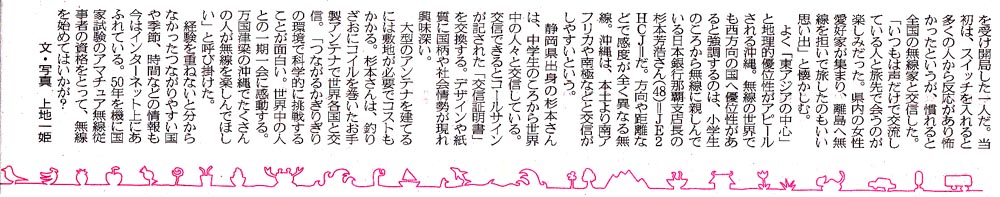 を受け開局した一人だ。当
初は、スイッチを入れると
多くの人から反応があり怖
かったというが、慣れると
全国の無線家と交信した。
「いつもは声だけで交流し
ている人と旅先で会うのが
楽しみだった。県内の女性
愛好家が集まり、離島へ無
線を担いで旅したのもいい
思い出」と懐かしむ。
　よく「東アジアの中心」
と地理的優位性がアピール
される沖縄。無線の世界で
も西方向の国へ優位性があ
ると強調するのは、小学生
のころから無線に親しんで
いる日本銀行那覇支店長の
杉本芳浩さん(48)＝JE2
HCJ＝だ。方向や距離な
どで感度が全く異なる無
線。沖縄は、本土より南ア
フリカや南極などと交信が
しやすいという。
　静岡県出身の杉本さん
は、中学生のころから世界
中の人々と交信している。
交信できるとコールサイン
が記された「交信証明書」
を交換する。デザインや紙
質に国柄や社会情勢が現れ
興味深い。
　大型のアンテナを建てる
には敷地が必要でコストも
かかる。杉本さんは、釣り
ざおにコイルを巻いたお手
製アンテナで世界各国と交
信。「つながるかぎりぎり
の環境で科学的に挑戦する
ことが面白い。世界中の人
との一期一会に感動する。
万国津梁の沖縄でたくさん
の人が無線を楽しんでほし
い」と呼び掛けた。
　経験を重ねないと分から
なかったつながりやすい国
や季節、時間などの情報も
今はインターネット上にあ
ふれている。50年を機に国
家試験のアマチュア無線従
事者の資格をとって、無線
を始めてはいかが？
文・写真　上地一姫